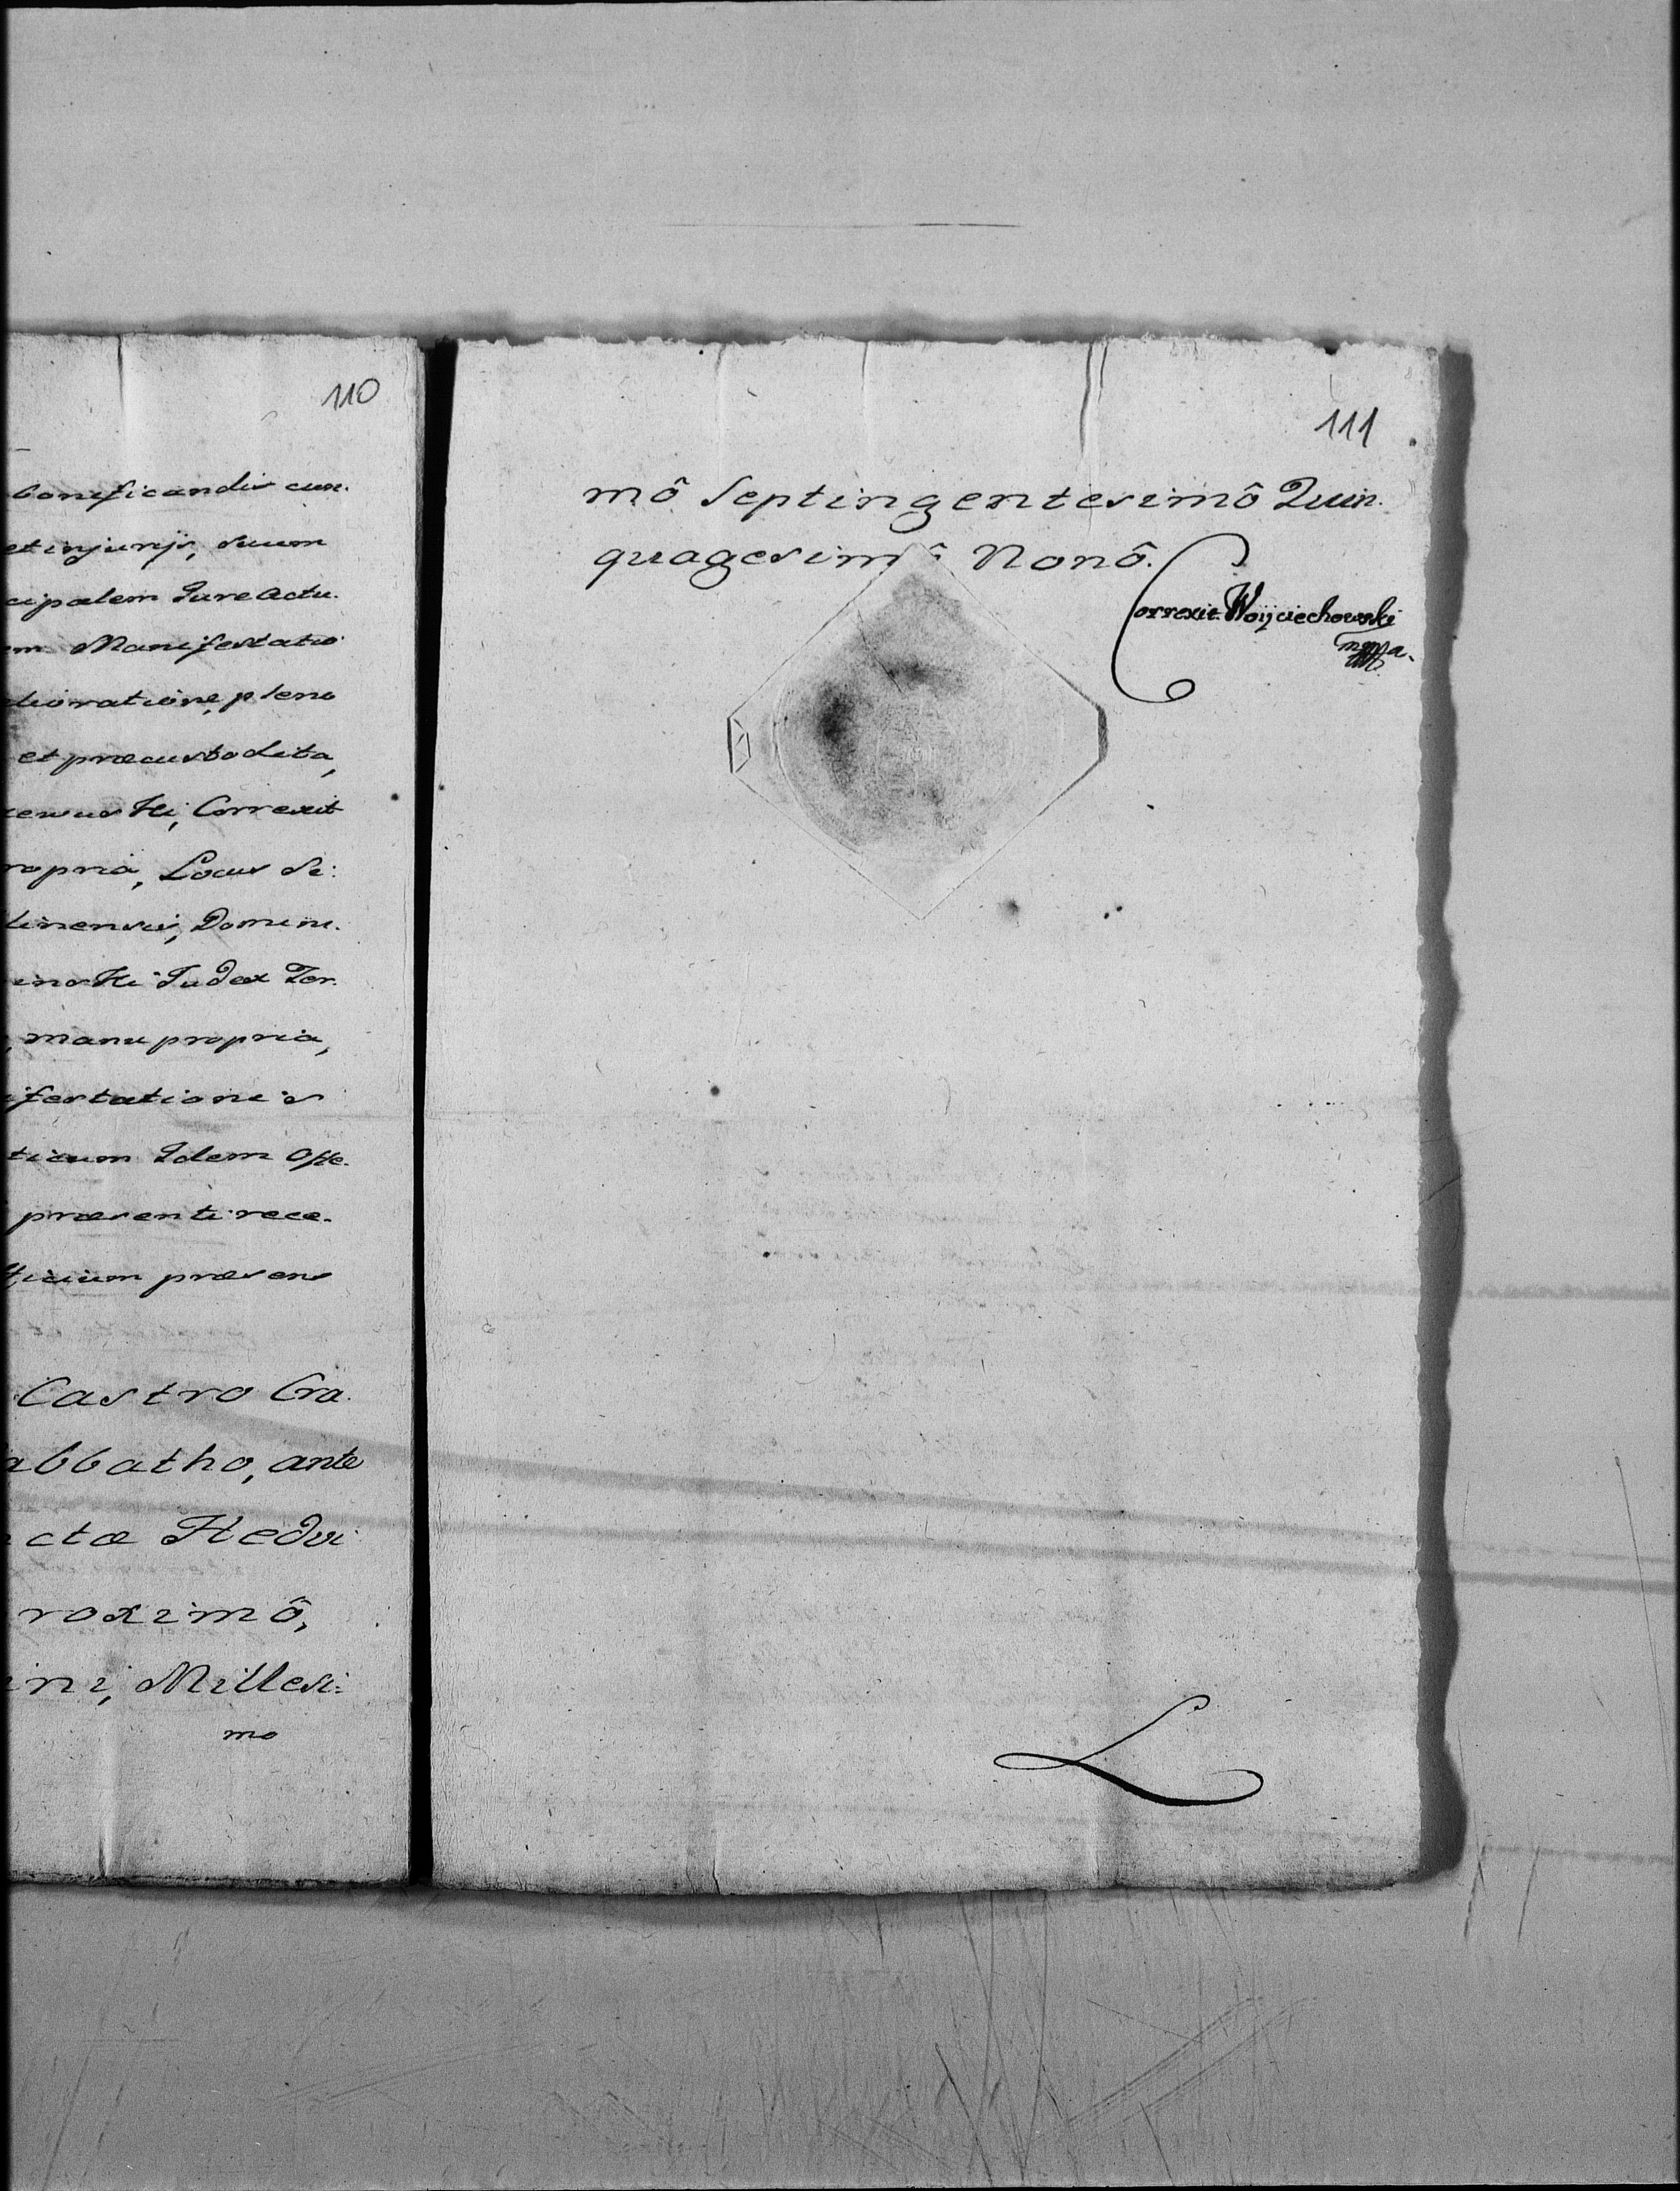 110
bonificandis cun.
et injurijs, suum
cipalem Jure Actu.
em Manifestatio
lioratione, pleno
et præcustodita,
Correxit
ropria, Locus Si:
linensis, Domini.
Judex Ter.
manu propria,
ifestationis
ticum Idem Offe.
præsenti rece.
præsens
Castro Cra.
abbatho, ante
ctæ Hedvi
roximô,
ini, Millesi:
mo
111
mô Septingentesimô Quin.
quagesimô Nonô.
Correxit Woijciechowski
mpp